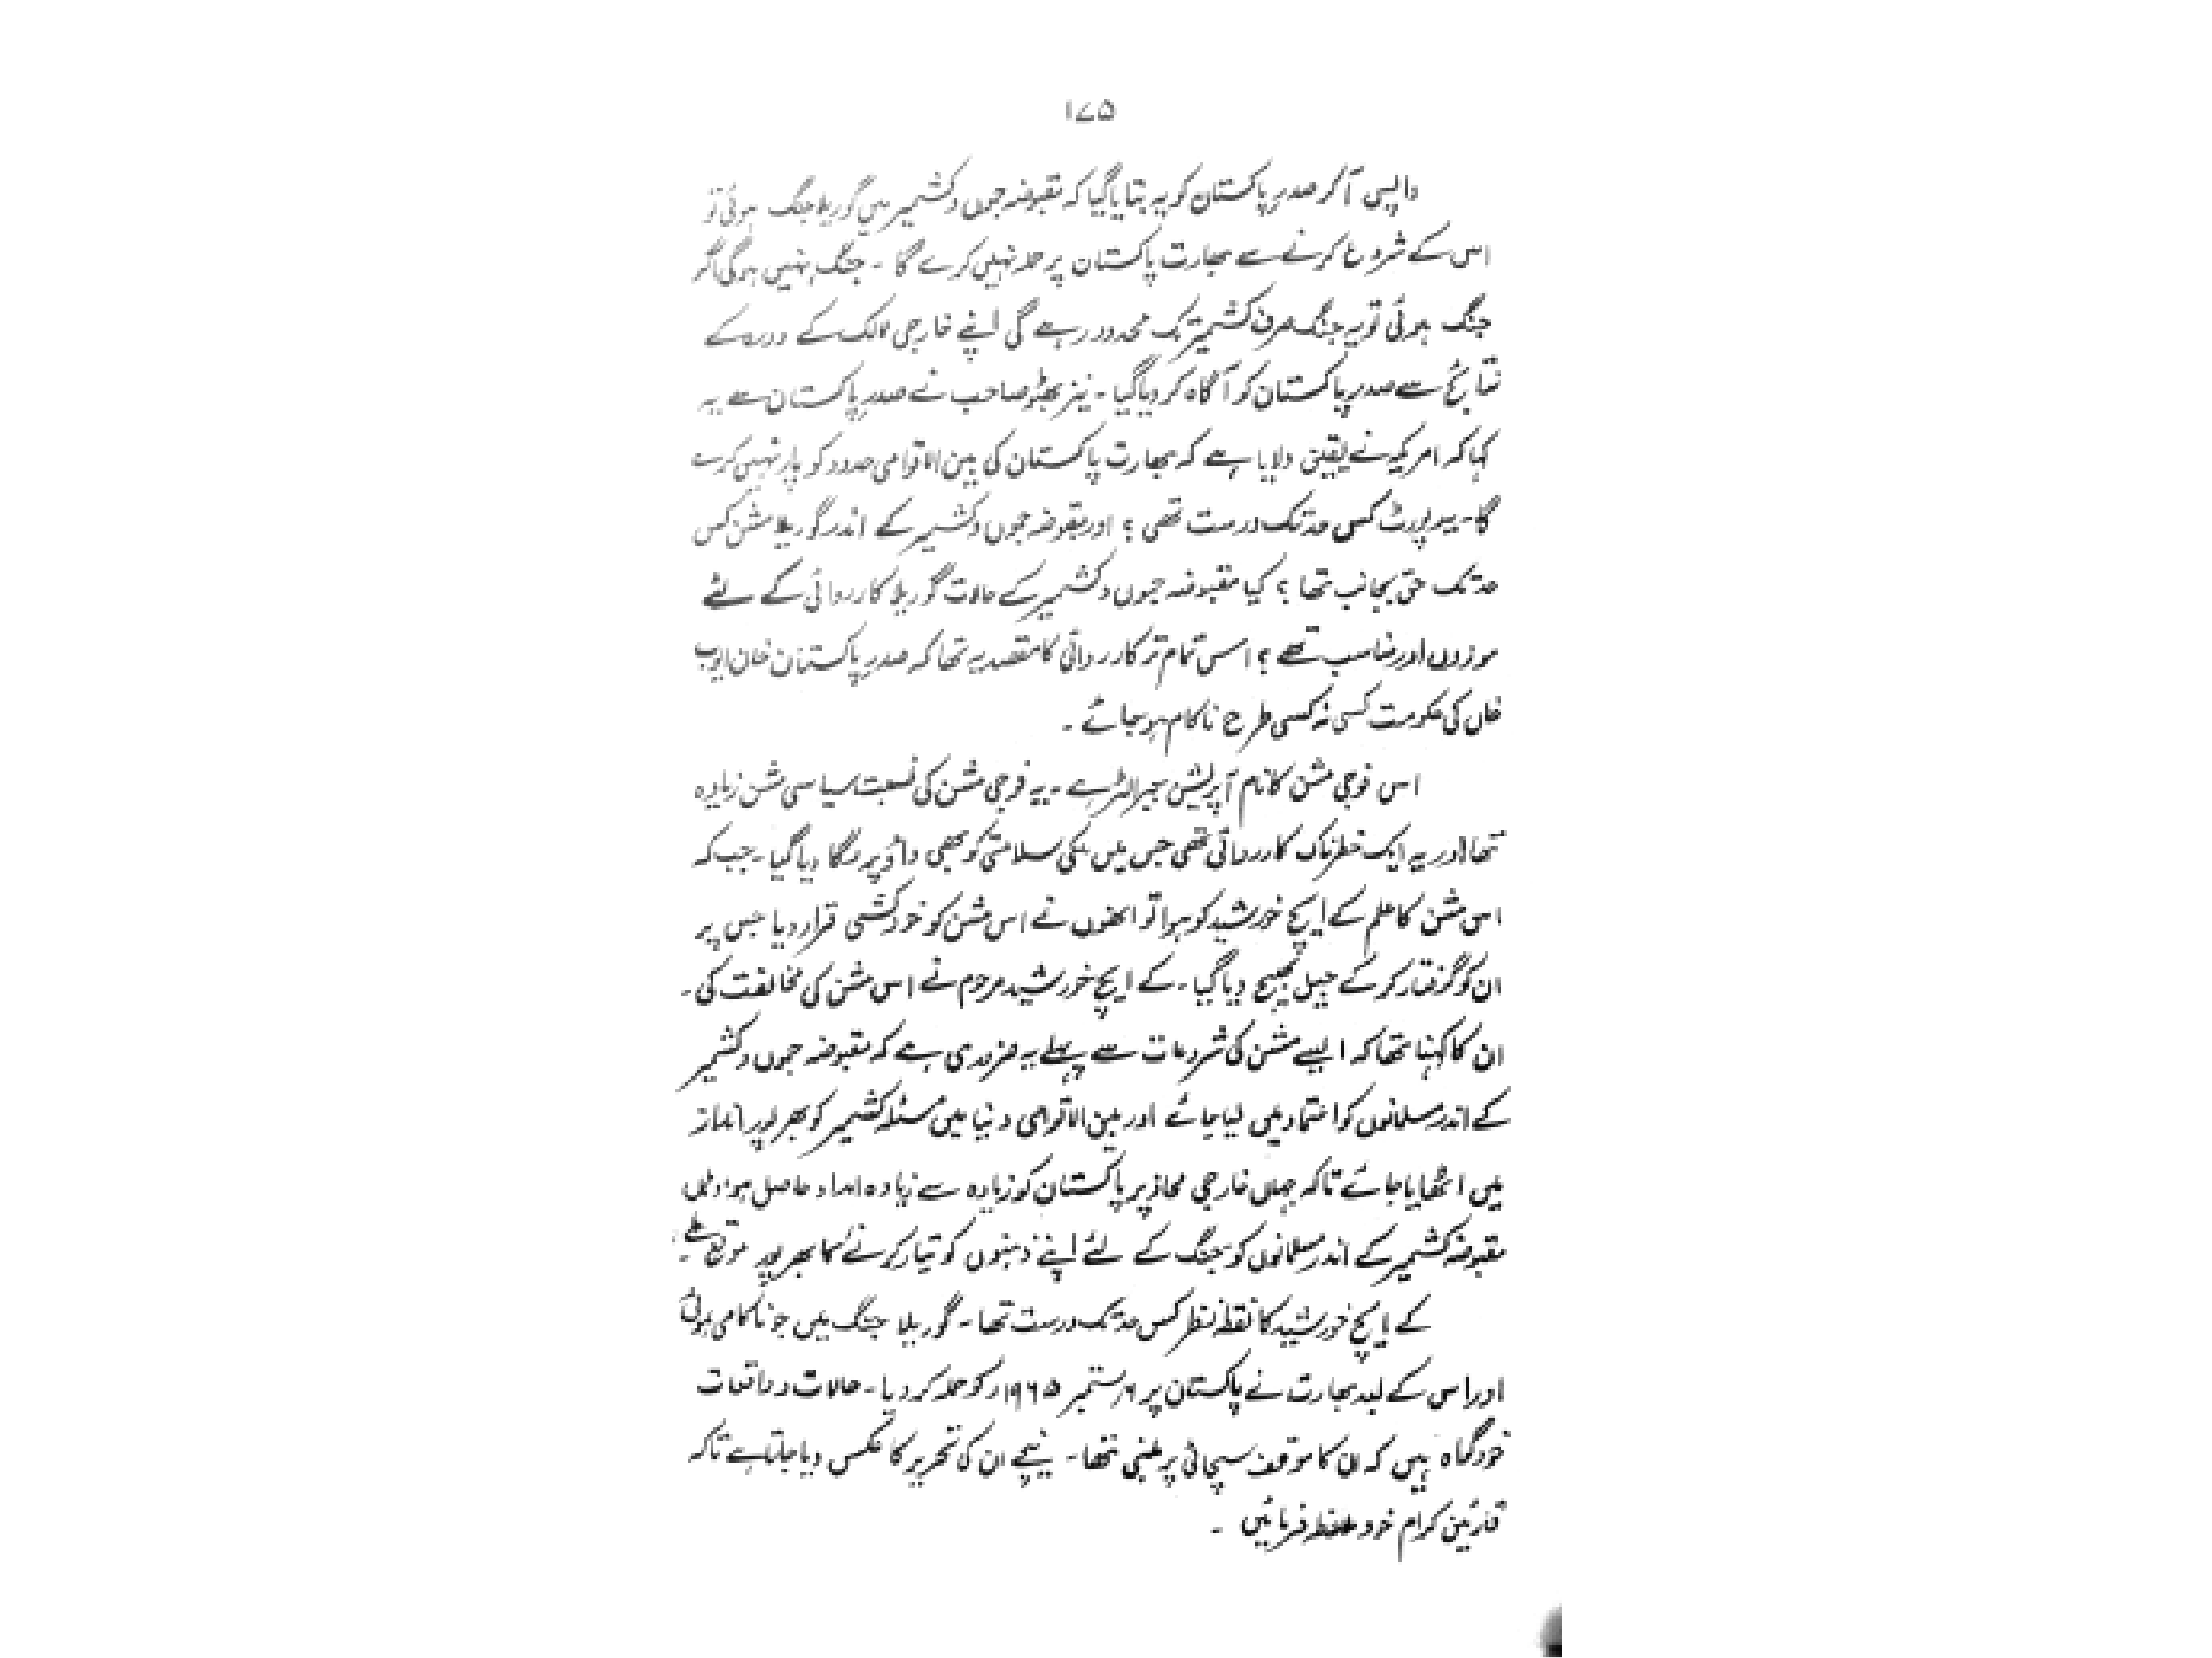 ۱۷۵
واپسی آکر صدر پاکستان کو یہ بتایا گیا کہ مقبوضہ جموں و کشمیر میں گوریلا جنگ ہوئی تو
اس کے شروع کرنے سے بھارت پاکستان پر حملہ نہیں کرے گا ۔ جنگ نہیں ہوگی اگر
جنگ ہوئی تو یہ جنگ صرف کشمیر تک محدود رہے گی اپنے خارجی ممالک کے دورے کے
نتائج سے صدر پاکستان کو آگاہ کر دیا گیا ۔ نیز بھٹو صاحب نے صدر پاکستان سے یہ
کہا کہ امریکہ نے یقین دلایا ہے کہ بھارت پاکستان کی بین الاقوامی حدود کو پار نہیں کرے
گا ۔ یہ رپورٹ کس حد تک درست تھی ؟ اور مقبوضہ جموں و کشمیر کے اندر گوریلا مشن کس
حد تک حق بجانب تھا ؟ کیا مقبوضہ جموں و کشمیر کے حالات گوریلا کارروائی کے لئے
موزوں اور مناسب تھے ؟ اس تمام تر کارروائی کا مقصد یہ تھا کہ صدر پاکستان خان ایوب
خاں کی حکومت کسی نہ کسی طرح ناکام ہو جائے ۔
اس فوجی مشن کا نام آپریشن جبرالٹر ہے ۔ یہ فوجی مشن کی نسبت سیاسی مشن زیادہ
تھا اور یہ ایک خطرناک کارروائی تھی جس میں ملکی سلامتی کو بھی داؤ پر لگا دیا گیا ۔ جب کہ
اس مشن کا علم کے ایچ خورشید کو ہوا تو انھوں نے اس مشن کو خودکشی قرار دیا جس پر
ان کو گرفتار کر کے جیل بھیج دیا گیا ۔ کے ایچ خورشید مرحوم نے اس مشن کی مخالفت کی ۔
ان کا کہنا تھا کہ ایسے مشن کی شروعات سے پہلے یہ ضروری ہے کہ مقبوضہ جموں و کشمیر
کے اندر مسلمانوں کو اعتماد میں لیا جائے اور بین الاقوامی دنیا میں مسئلہ کشمیر کو بھر پور انداز
میں اٹھایا جائے تاکہ جہاں خارجی محاذ پر پاکستان کو زیادہ سے زیادہ امداد حاصل ہو وہاں
مقبوضہ کشمیر کے اندر مسلمانوں کو جنگ کے لئے اپنے ذہنوں کو تیار کرنے کا بھر پور موقع ملے ۔
کے ایچ خورشید کا نقطۂ نظر کس حد تک درست تھا ۔ گوریلا جنگ میں جو ناکامی ہوئی
اور اسی کے بعد بھارت نے پاکستان پر ۶ ستمبر ۱۹۶۵ء کو حملہ کر دیا ۔ حالات و واقعات
خود گواہ ہیں کہ ان کا موقف سچائی پر مبنی تھا ۔ نیچے ان کی تحریر کا عکس دیا جاتا ہے تاکہ
قارئین کرام خود ملاحظہ فرمائیں ۔